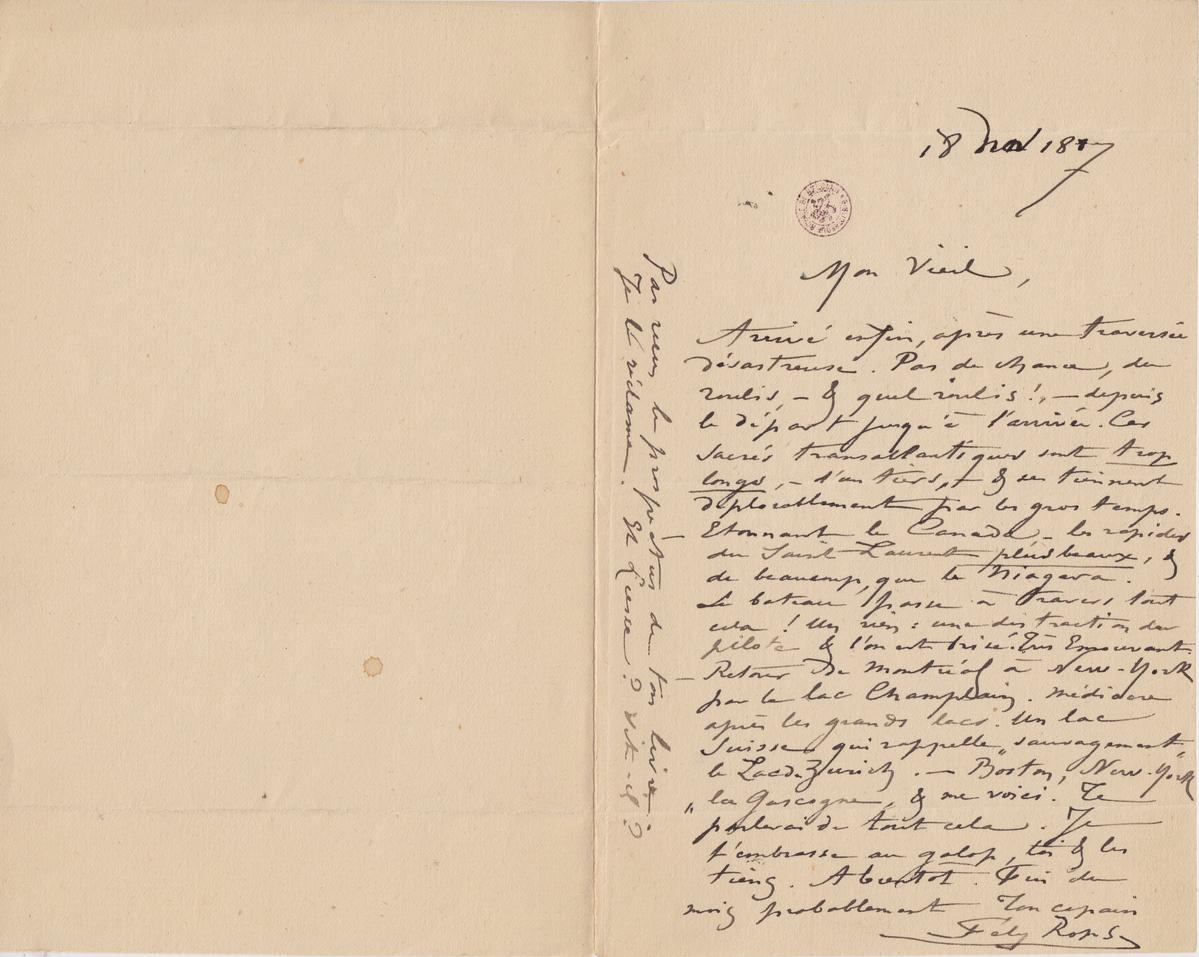 18 Nov 1887
Mon Vieil,
Arrivé enfin, après une traversée
désastreuse. Pas de chance, du
roulis, – & quel roulis!, – depuis
le départ jusqu'à l'arrivée. Ces
sacrés transatlantiques sont trop
longs, – d'un tiers, – & se tiennent
déplorablement par les gros temps.
– Etonnant le Canada – les rapides
du Saint-Laurent plus beaux, &
de beaucoup, que le Niagara.
Le bateau passe à travers tout
cela! Un rien: une distraction du
pilote & l'on est brisé. Très Emouvant.
– Retour de Montréal à New-York
par le lac Champlain. médiocre
après les grands lacs. Un lac
Suisse qui rappelle „sauvagement"
le Lac de Zurich. – Boston, New-York
„la Gascogne, & me voici. Te
parlerai de tout cela. Je
t'embrasse au galop, toi & les
tiens. A bientôt. Fin du
mois probablement Ton copain
Fély Rops
Pas reçu le prospectus de ton livre.
Je le réclame. Et Liesse? Vit-il?